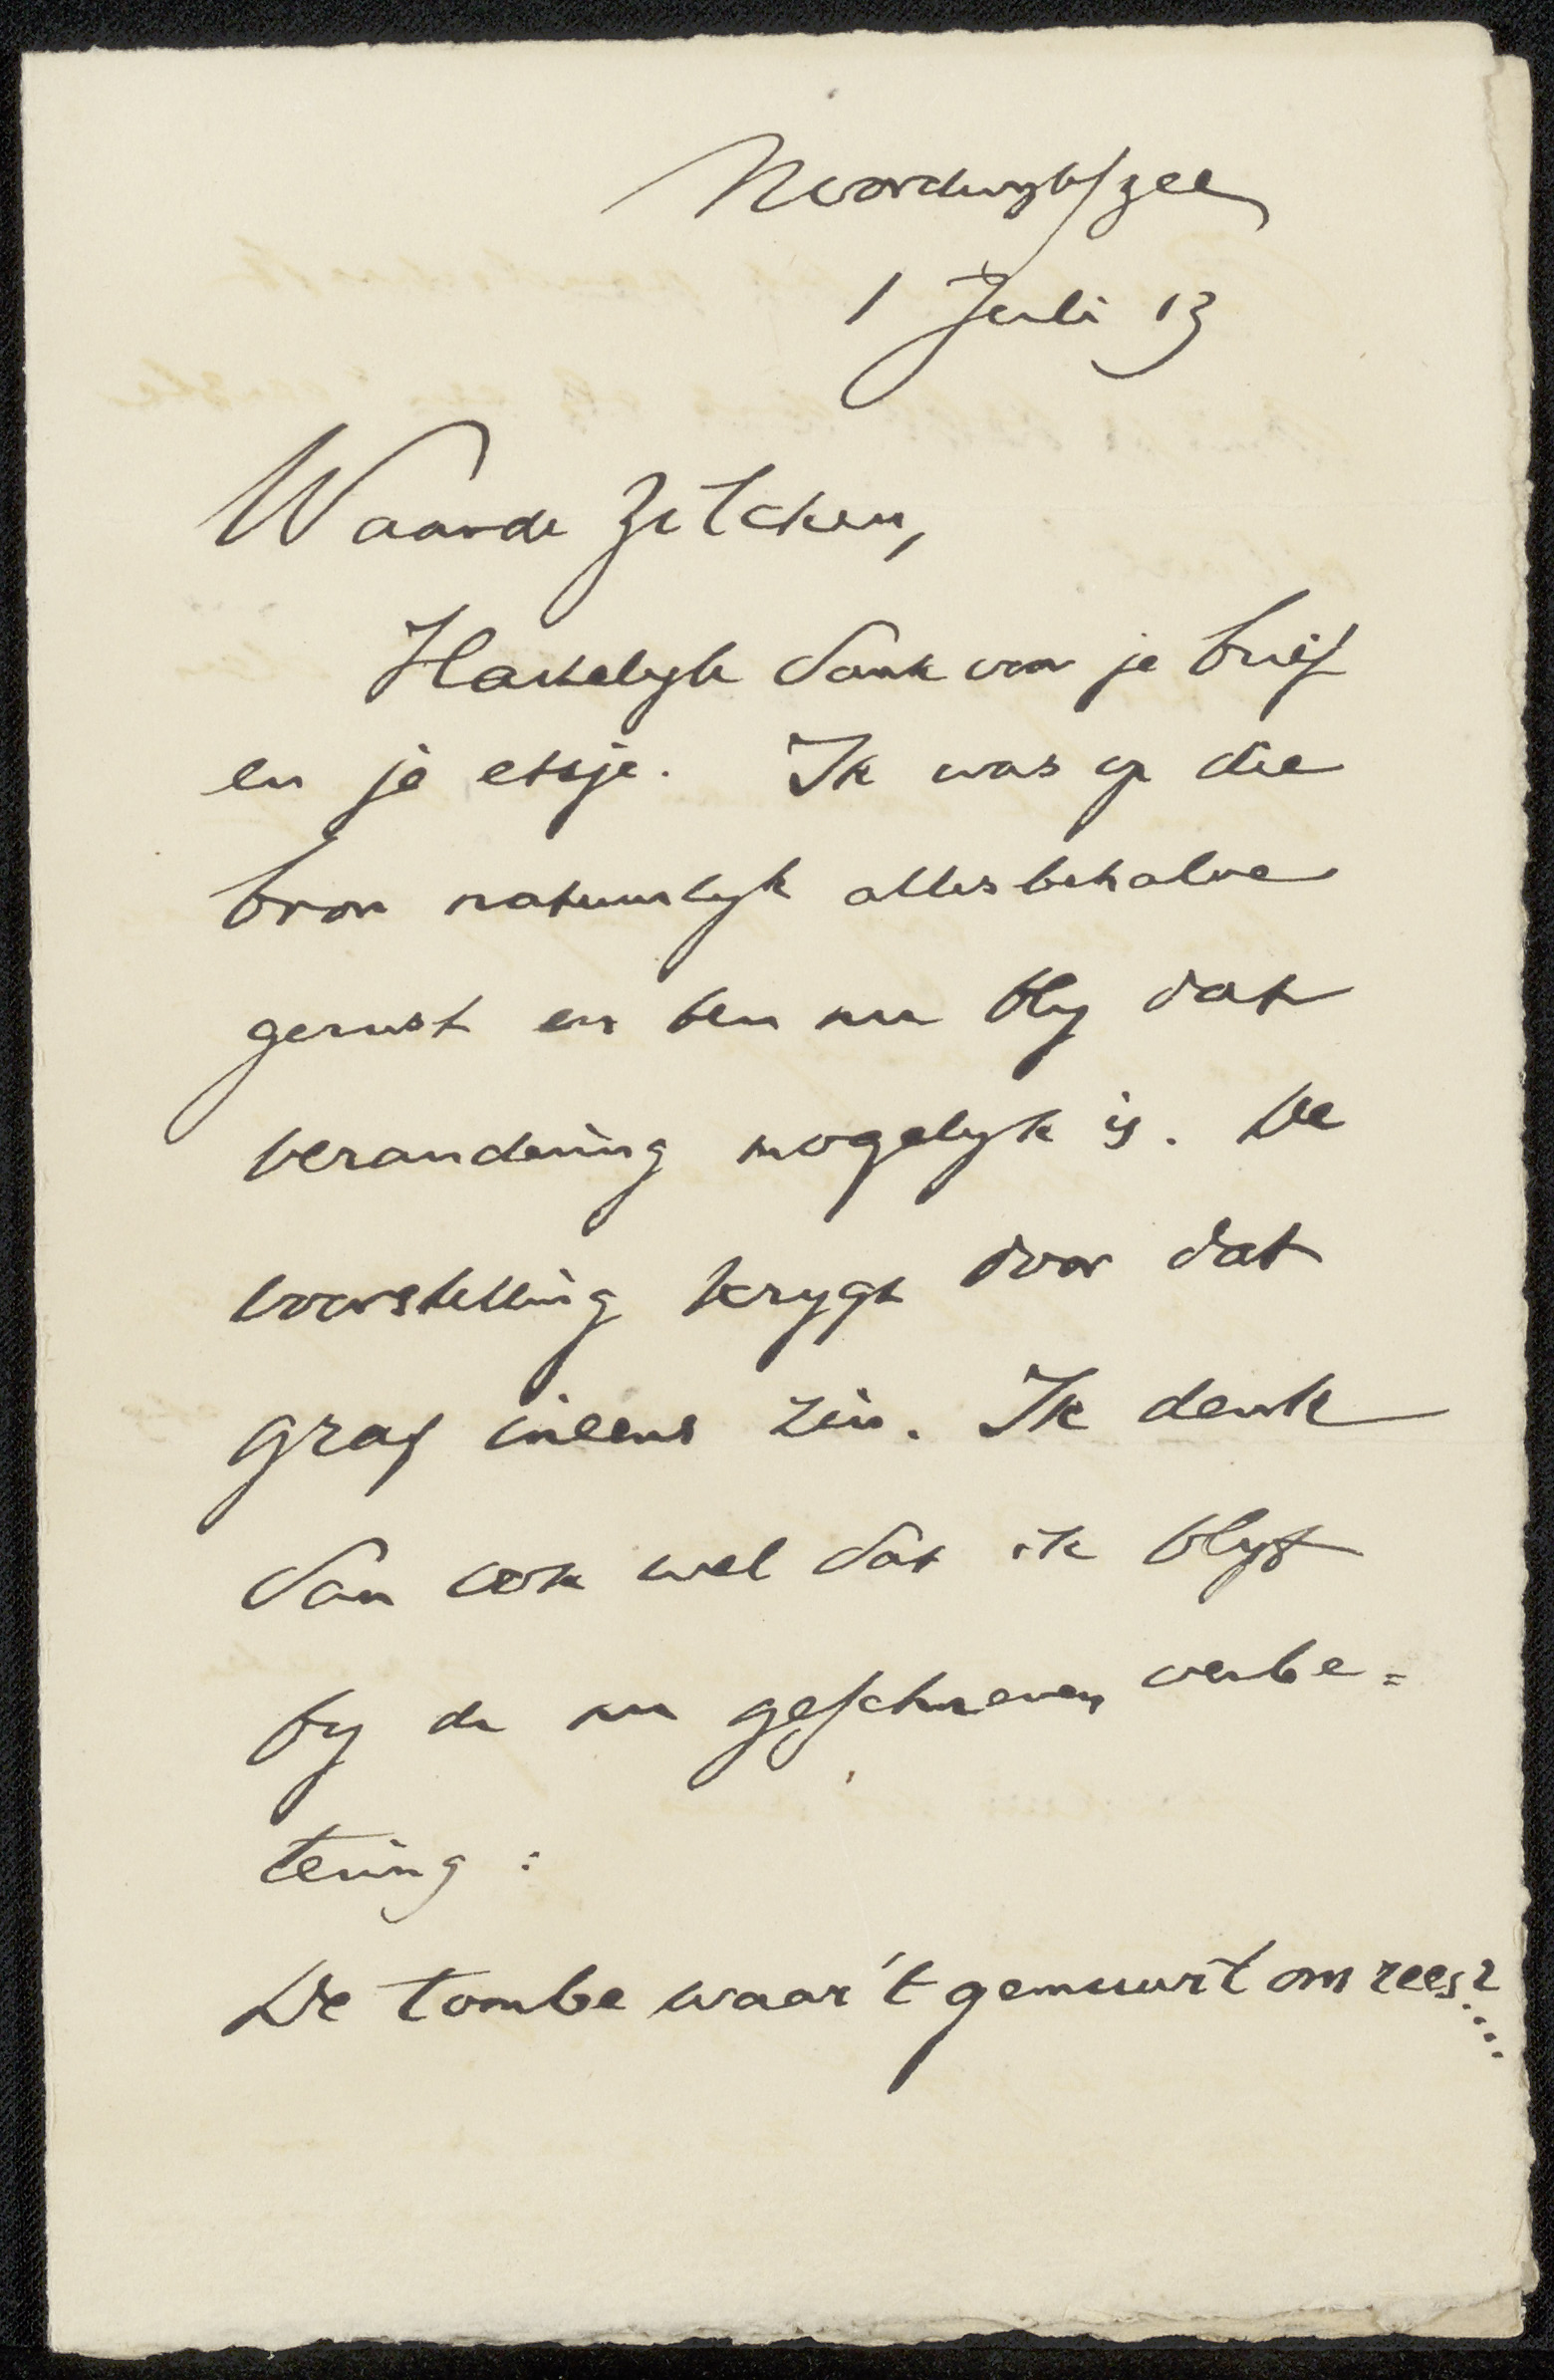 Noordwyk/zee
1 Juli 13
Waarde Zilcken,
Hartelyk dank voor je brief
en je etsje. Ik was op die
bron natuurlyk allesbehalve
gerust en ben nu bly dat
verandering mogelyk is. De
voorstelling krygt door dat
graf ineens zin. Ik denk
dan ook wel dat ik blyf
by de nu geschreven verbe=
tering:
De tombe waar 't gemuurt om rees?....